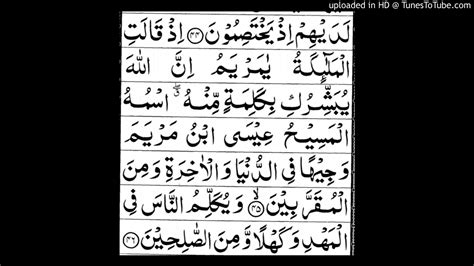 uploaded in HD @ TunesToTube.com
لَدَيۡهِمۡ اِذۡ يَخۡتَصِمُوۡنَ ﴿۴۴﴾ اِذۡ قَالَتِ
الۡمَلٰٓئِكَةُ يٰمَرۡيَمُ اِنَّ اللّٰهَ
يُبَشِّرُكِ بِكَلِمَةٍ مِّنۡهُ ۖ اسۡمُهُ
الۡمَسِيۡحُ عِيۡسَى ابۡنُ مَرۡيَمَ
وَجِيۡهًا فِى الدُّنۡيَا وَالۡاٰخِرَةِ وَمِنَ
الۡمُقَرَّبِيۡنَ ﴿۴۵﴾ ۙ وَيُكَلِّمُ النَّاسَ فِى
الۡمَهۡدِ وَكَهۡلًا وَّمِنَ الصّٰلِحِيۡنَ ﴿۴۶﴾